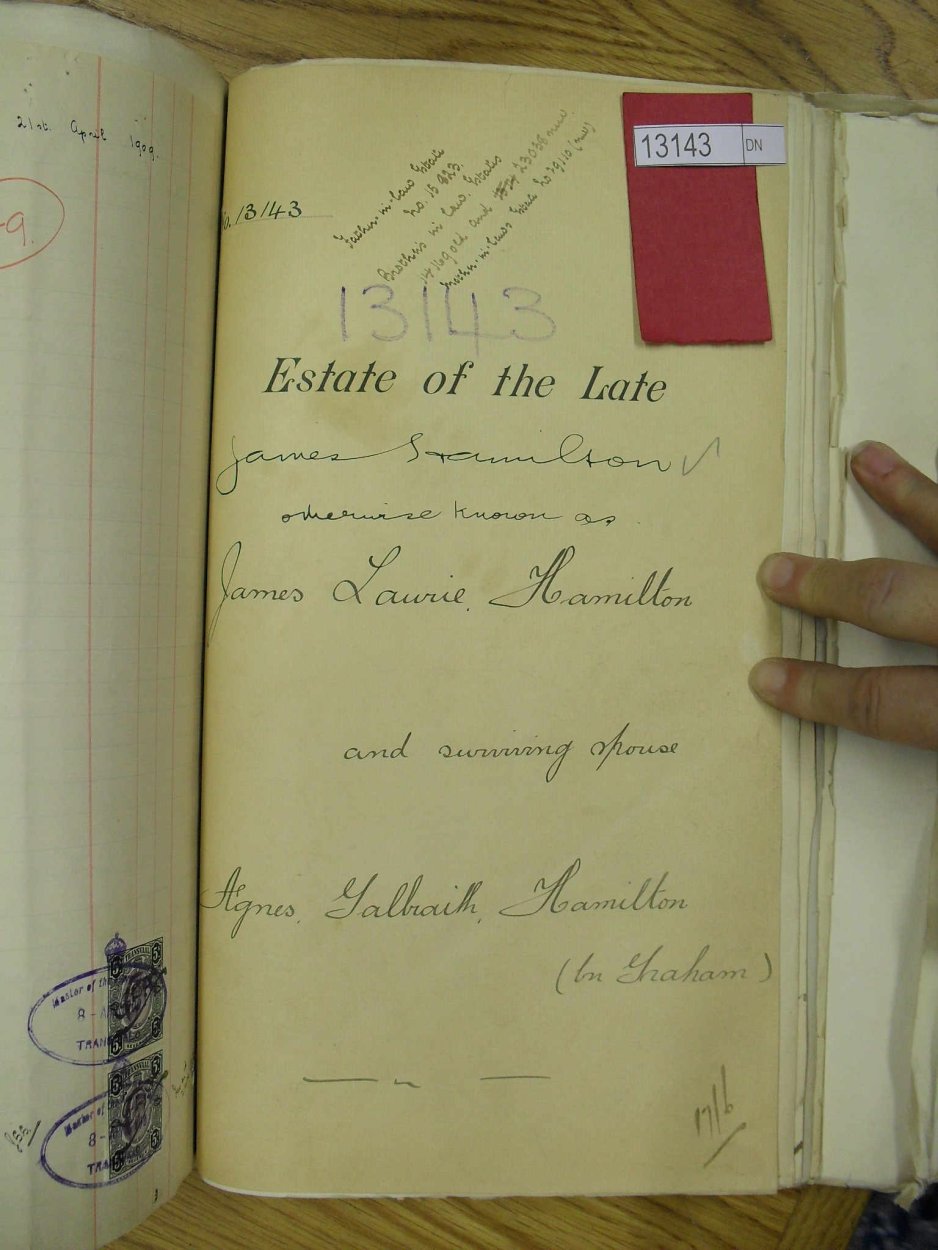 21st. April 1909.
9.
No. 13143
Father-in-law Estate
No. 15823.
Brothers in Law. Estates
and 23038
Mother-in-laws Estate No
13143
13143 DN
Estate of the Late
James Hamilton
otherwise known as
James Laurie Hamilton
and surviving spouse
Agnes Galbraith Hamilton
(bn Graham)
17/6
Master of the
8 -
TRAN
5/
Master of the
8 -
TRA
5/